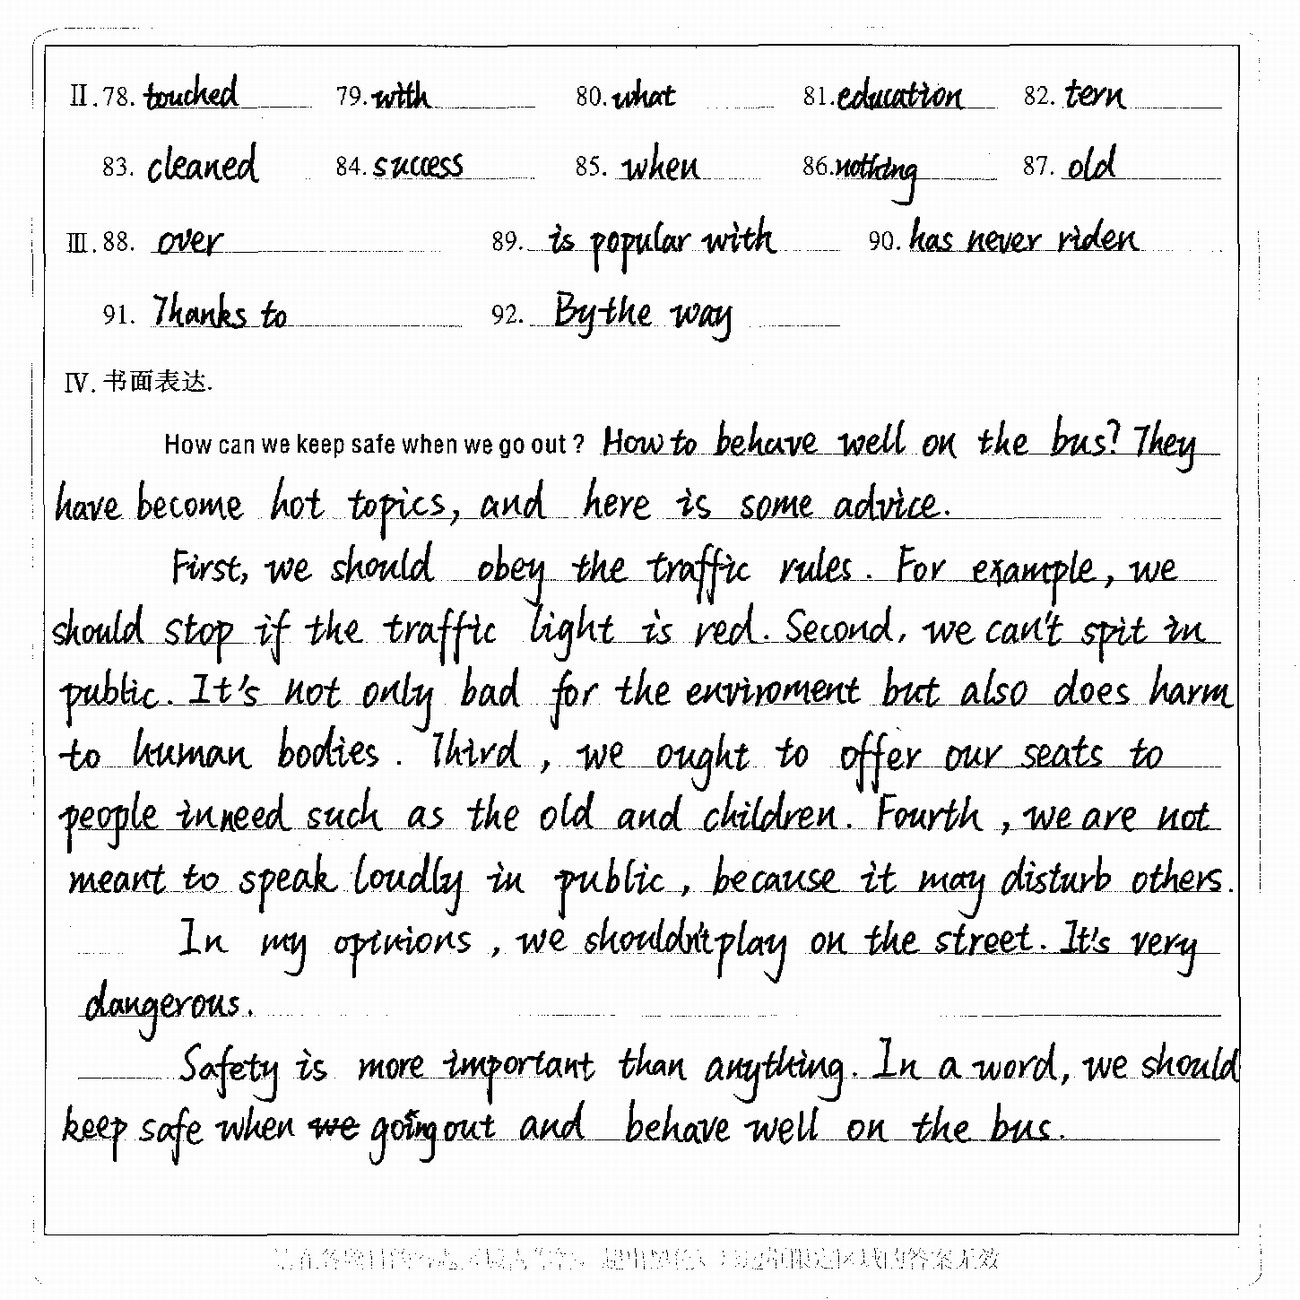 II.78. touched 79. with 80. what 81. education 82. tern
83. cleaned 84. success 85. when 86. nothing 87. old
III.88. over 89. is popular with 90. has never riden
91. Thanks to 92. By the way
IV. 书面表达.
How can we keep safe when we go out? How to behave well on the bus? They
have become hot topics, and here is some advice.
First, we should obey the traffic rules. For example, we
should stop if the traffic light is red. Second, we can't spit in
public. It's not only bad for the enviroment but also does harm
to human bodies. Third, we ought to offer our seats to
people in need such as the old and children. Fourth, we are not
meant to speak loudly in public, because it may disturb others.
In my opinions, we shouldn't play on the street. It's very
dangerous.
Safety is more important than anything. In a word, we should
keep safe when we going out and behave well on the bus.